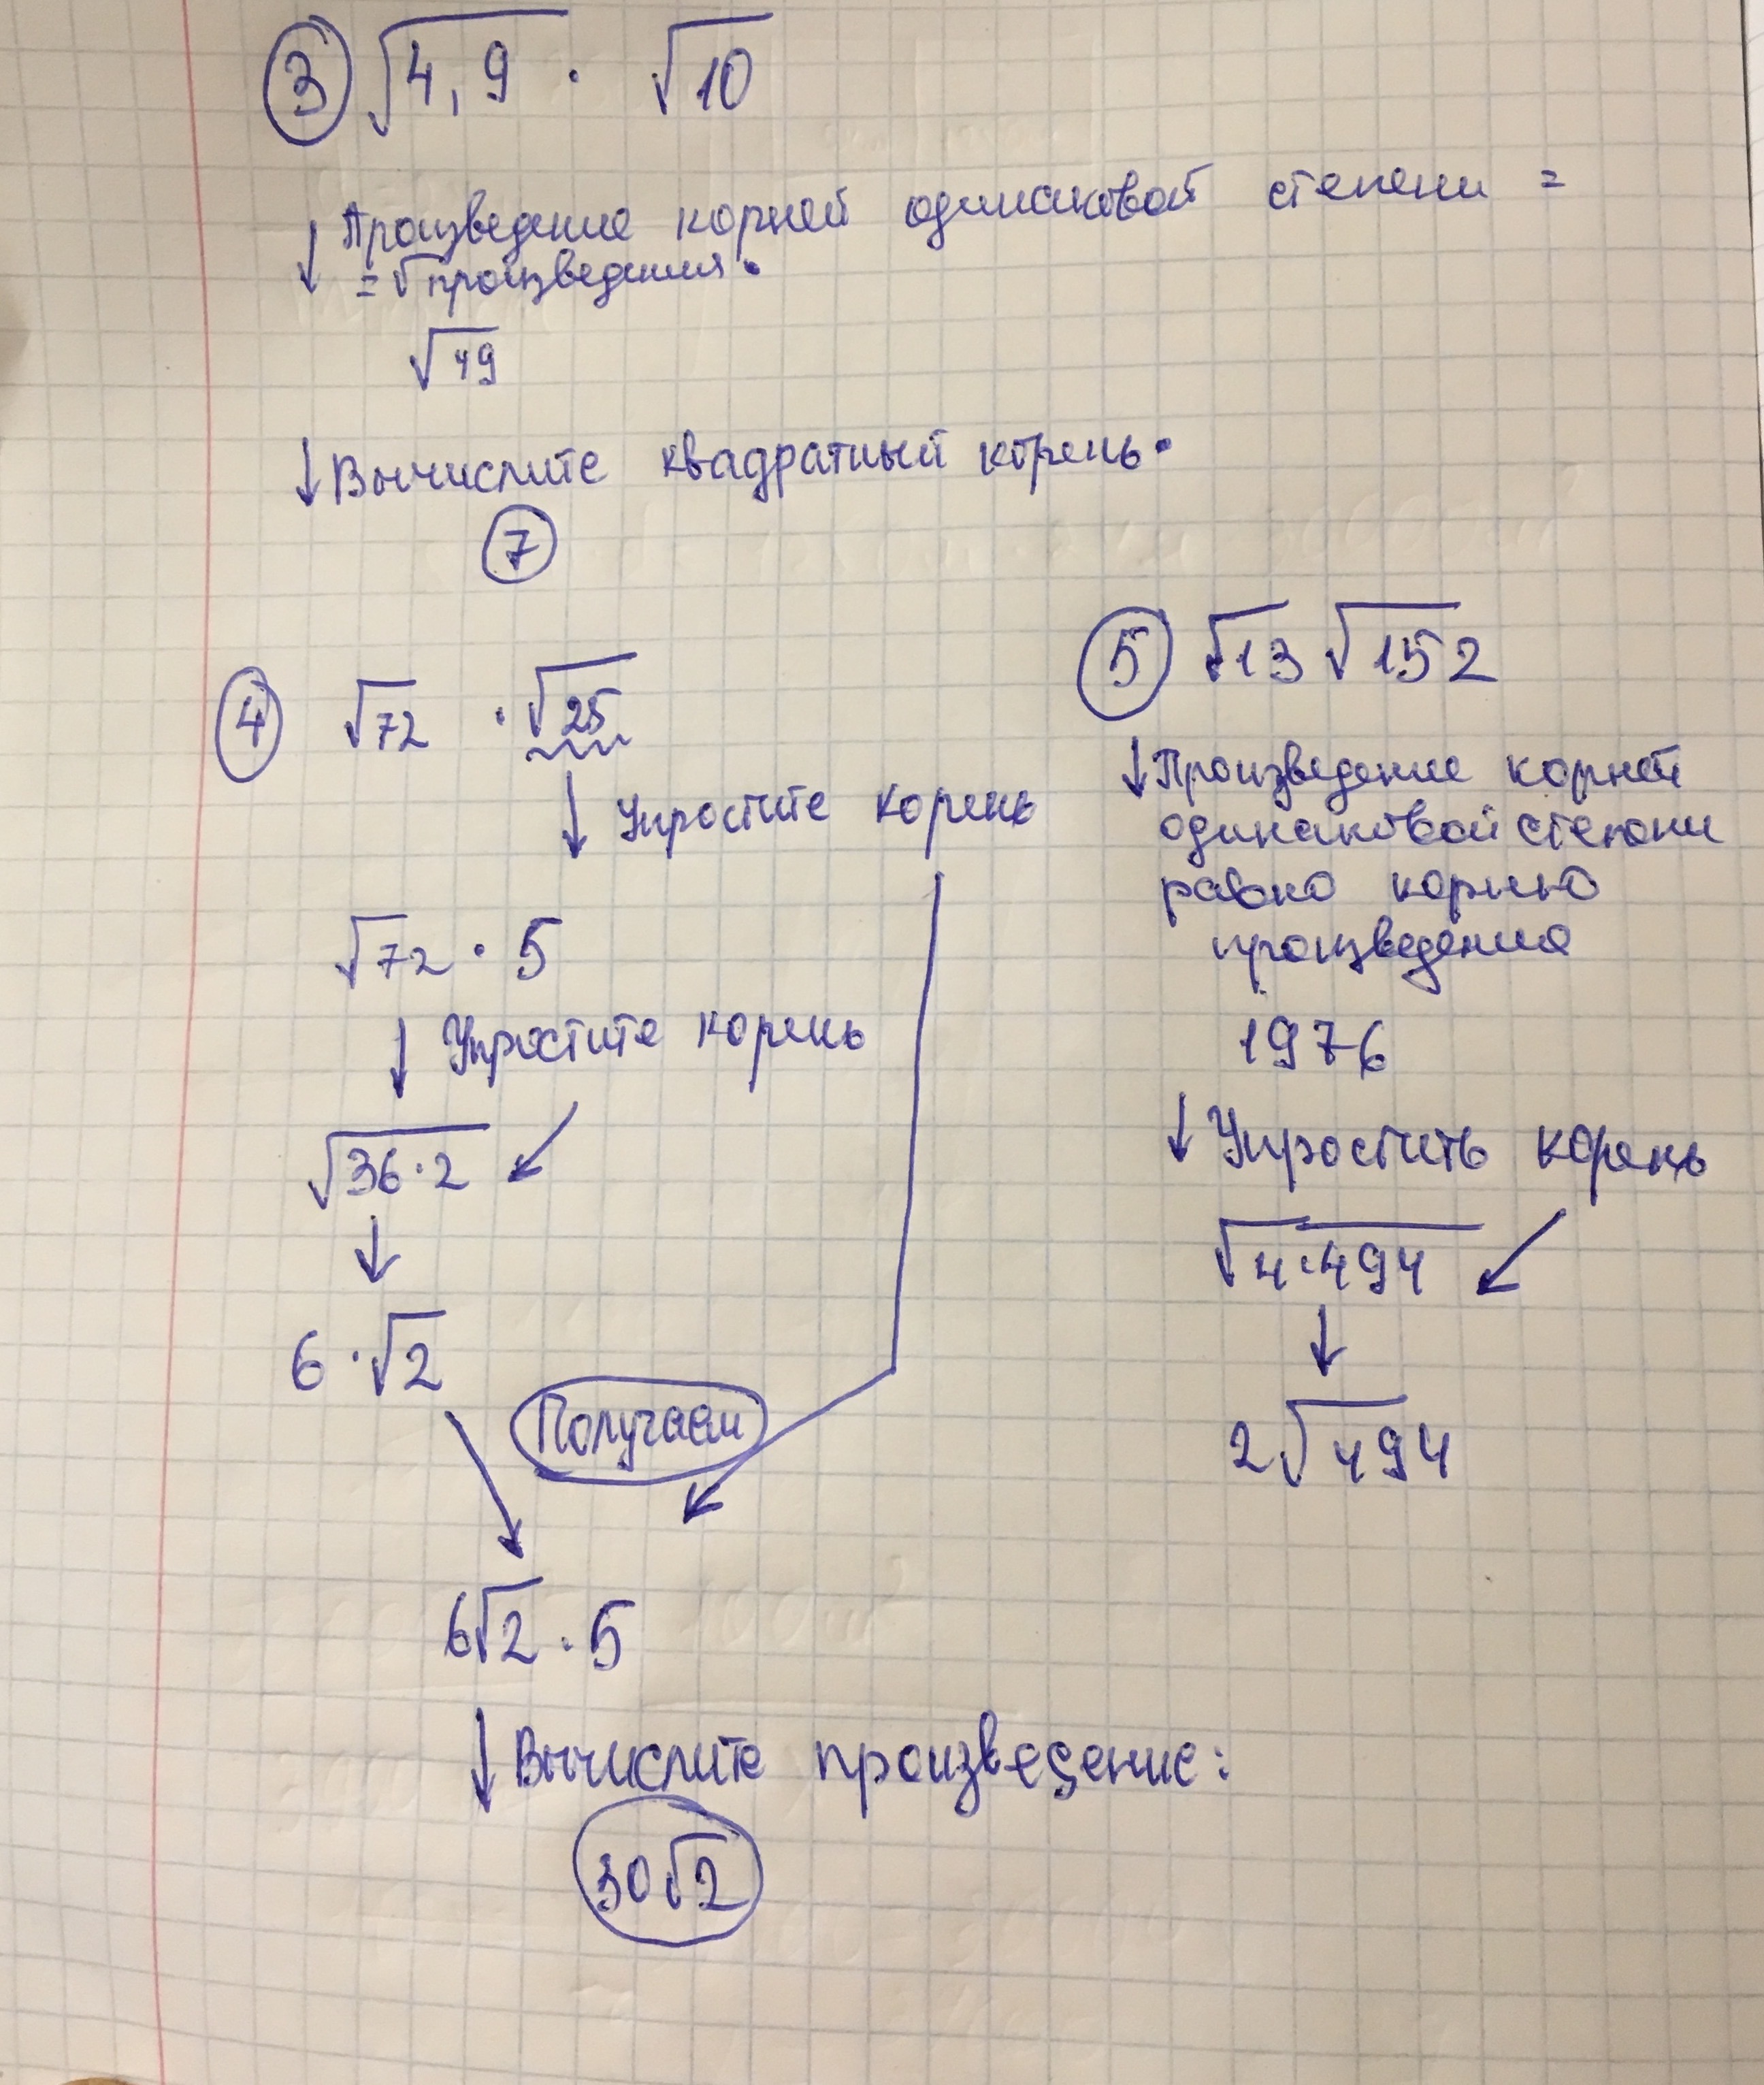 ③ √4,9 · √10
↓ Произведение корней одинаковой степени =
= √произведения.
√49
↓ Вычислите квадратный корень.
7
④ √72 · √25
↓ Упростите корень
√72 · 5
↓ Упростите корень
√36·2
↓
6 · √2
Получаем
6√2 · 5
↓ Вычислите произведение:
30√2
⑤ √13 √152
↓ Произведение корней
одинаковой степени
равно корню
произведения
1976
↓ Упростить корень
√4·494
↓
2√494